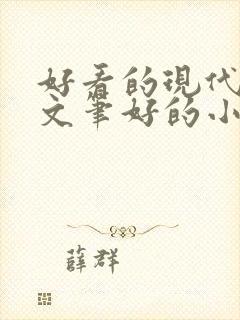 好看的现代
文笔好的小
薛群